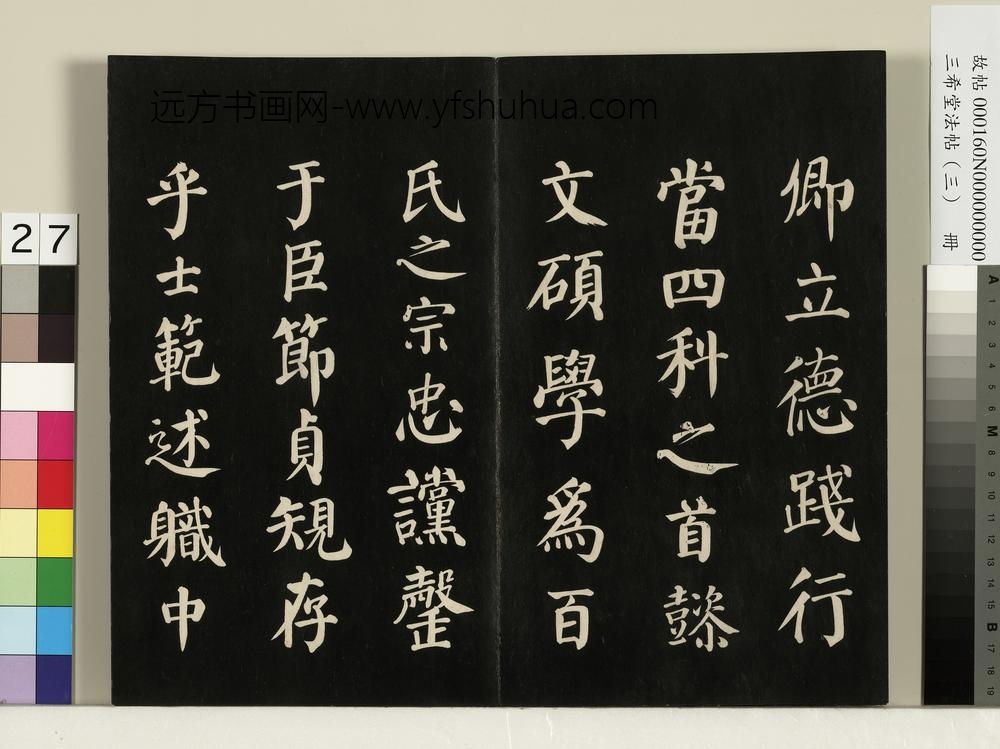 卿立德踐行
當四科之首懿
文碩學爲百
氏之宗忠讜罄
于臣節貞規存
乎士範述職中
远方书画网-www.yfshuhua.com
故帖 000160N000000000
三希堂法帖（三） 冊
27
A 1 2 3 4 5 6 M 8 9 10 11 12 13 14 15 B 17 18 19